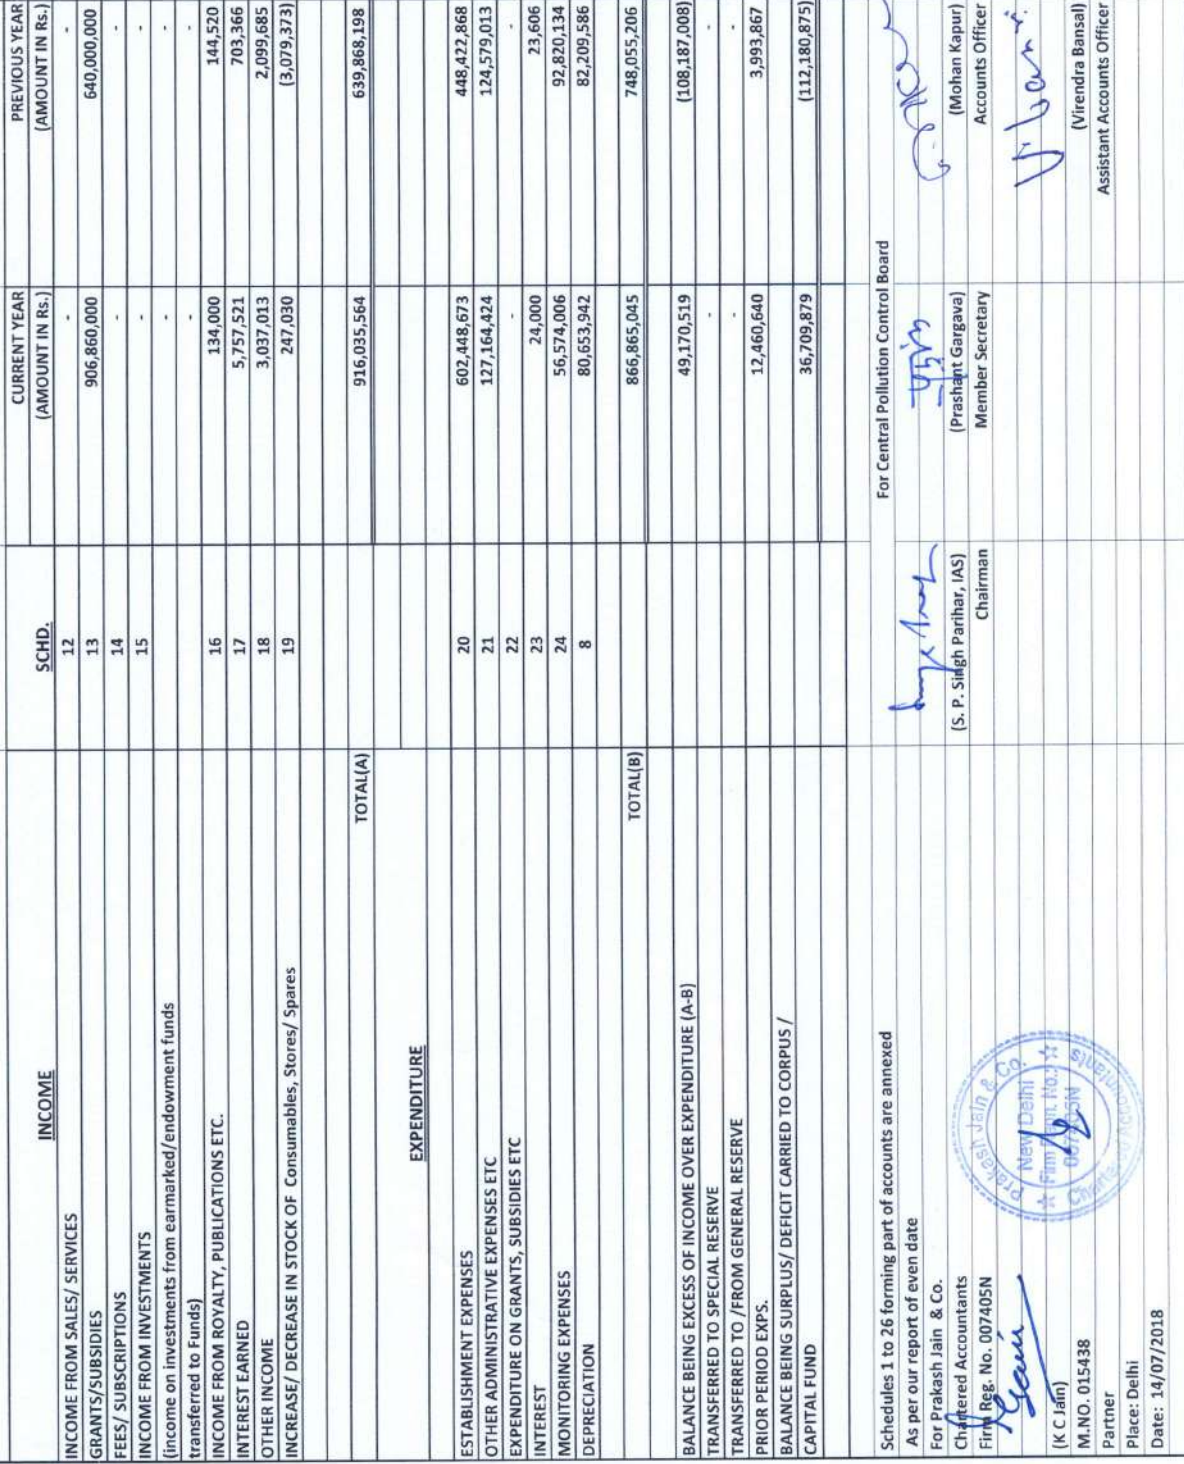 INCOME SCHD. CURRENT YEAR PREVIOUS YEAR
(AMOUNT IN Rs.) (AMOUNT IN Rs.)
INCOME FROM SALES/ SERVICES 12 - -
GRANTS/SUBSIDIES 13 906,860,000 640,000,000
FEES/ SUBSCRIPTIONS 14 - -
INCOME FROM INVESTMENTS 15 - -
(income on investments from earmarked/endowment funds - -
transferred to Funds) - -
INCOME FROM ROYALTY, PUBLICATIONS ETC. 16 134,000 144,520
INTEREST EARNED 17 5,757,521 703,366
OTHER INCOME 18 3,037,013 2,099,685
INCREASE/ DECREASE IN STOCK OF Consumables, Stores/ Spares 19 247,030 (3,079,373)
TOTAL(A) 916,035,564 639,868,198
EXPENDITURE
ESTABLISHMENT EXPENSES 20 602,448,673 448,422,868
OTHER ADMINISTRATIVE EXPENSES ETC 21 127,164,424 124,579,013
EXPENDITURE ON GRANTS, SUBSIDIES ETC 22 - -
INTEREST 23 24,000 23,606
MONITORING EXPENSES 24 56,574,006 92,820,134
DEPRECIATION 8 80,653,942 82,209,586
TOTAL(B) 866,865,045 748,055,206
BALANCE BEING EXCESS OF INCOME OVER EXPENDITURE (A-B) 49,170,519 (108,187,008)
TRANSFERRED TO SPECIAL RESERVE - -
TRANSFERRED TO /FROM GENERAL RESERVE - -
PRIOR PERIOD EXPS. 12,460,640 3,993,867
BALANCE BEING SURPLUS/ DEFICIT CARRIED TO CORPUS /
CAPITAL FUND 36,709,879 (112,180,875)
Schedules 1 to 26 forming part of accounts are annexed For Central Pollution Control Board
As per our report of even date
For Prakash Jain & Co.
Chartered Accountants (S. P. Singh Parihar, IAS) (Prashant Gargava) (Mohan Kapur)
Firm Reg. No. 007405N Chairman Member Secretary Accounts Officer
Prakash Jain & Co.
New Delhi
Firm Regn. No.
007405N
Chartered Accountants
(K C Jain)
M.NO. 015438 (Virendra Bansal)
Partner Assistant Accounts Officer
Place: Delhi
Date: 14/07/2018